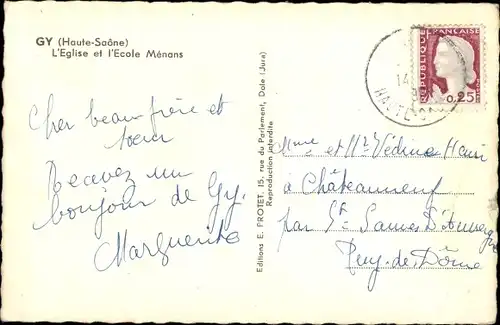 GY (Haute-Saône)
L'Eglise et l'Ecole Ménans
Cher beau frère et
sœur
Recevez un
bonjour de Gy.
Marguerite
Editions E. PROTET, 15, rue du Parlement, Dole (Jura)
Reproduction interdite
REPUBLIQUE
FRANÇAISE
0,25
14
HAUTE-SAONE
Mme et Mr Védrine Henri
à Châteauneuf
par St James D'Auvergne
Puy-de-Dôme